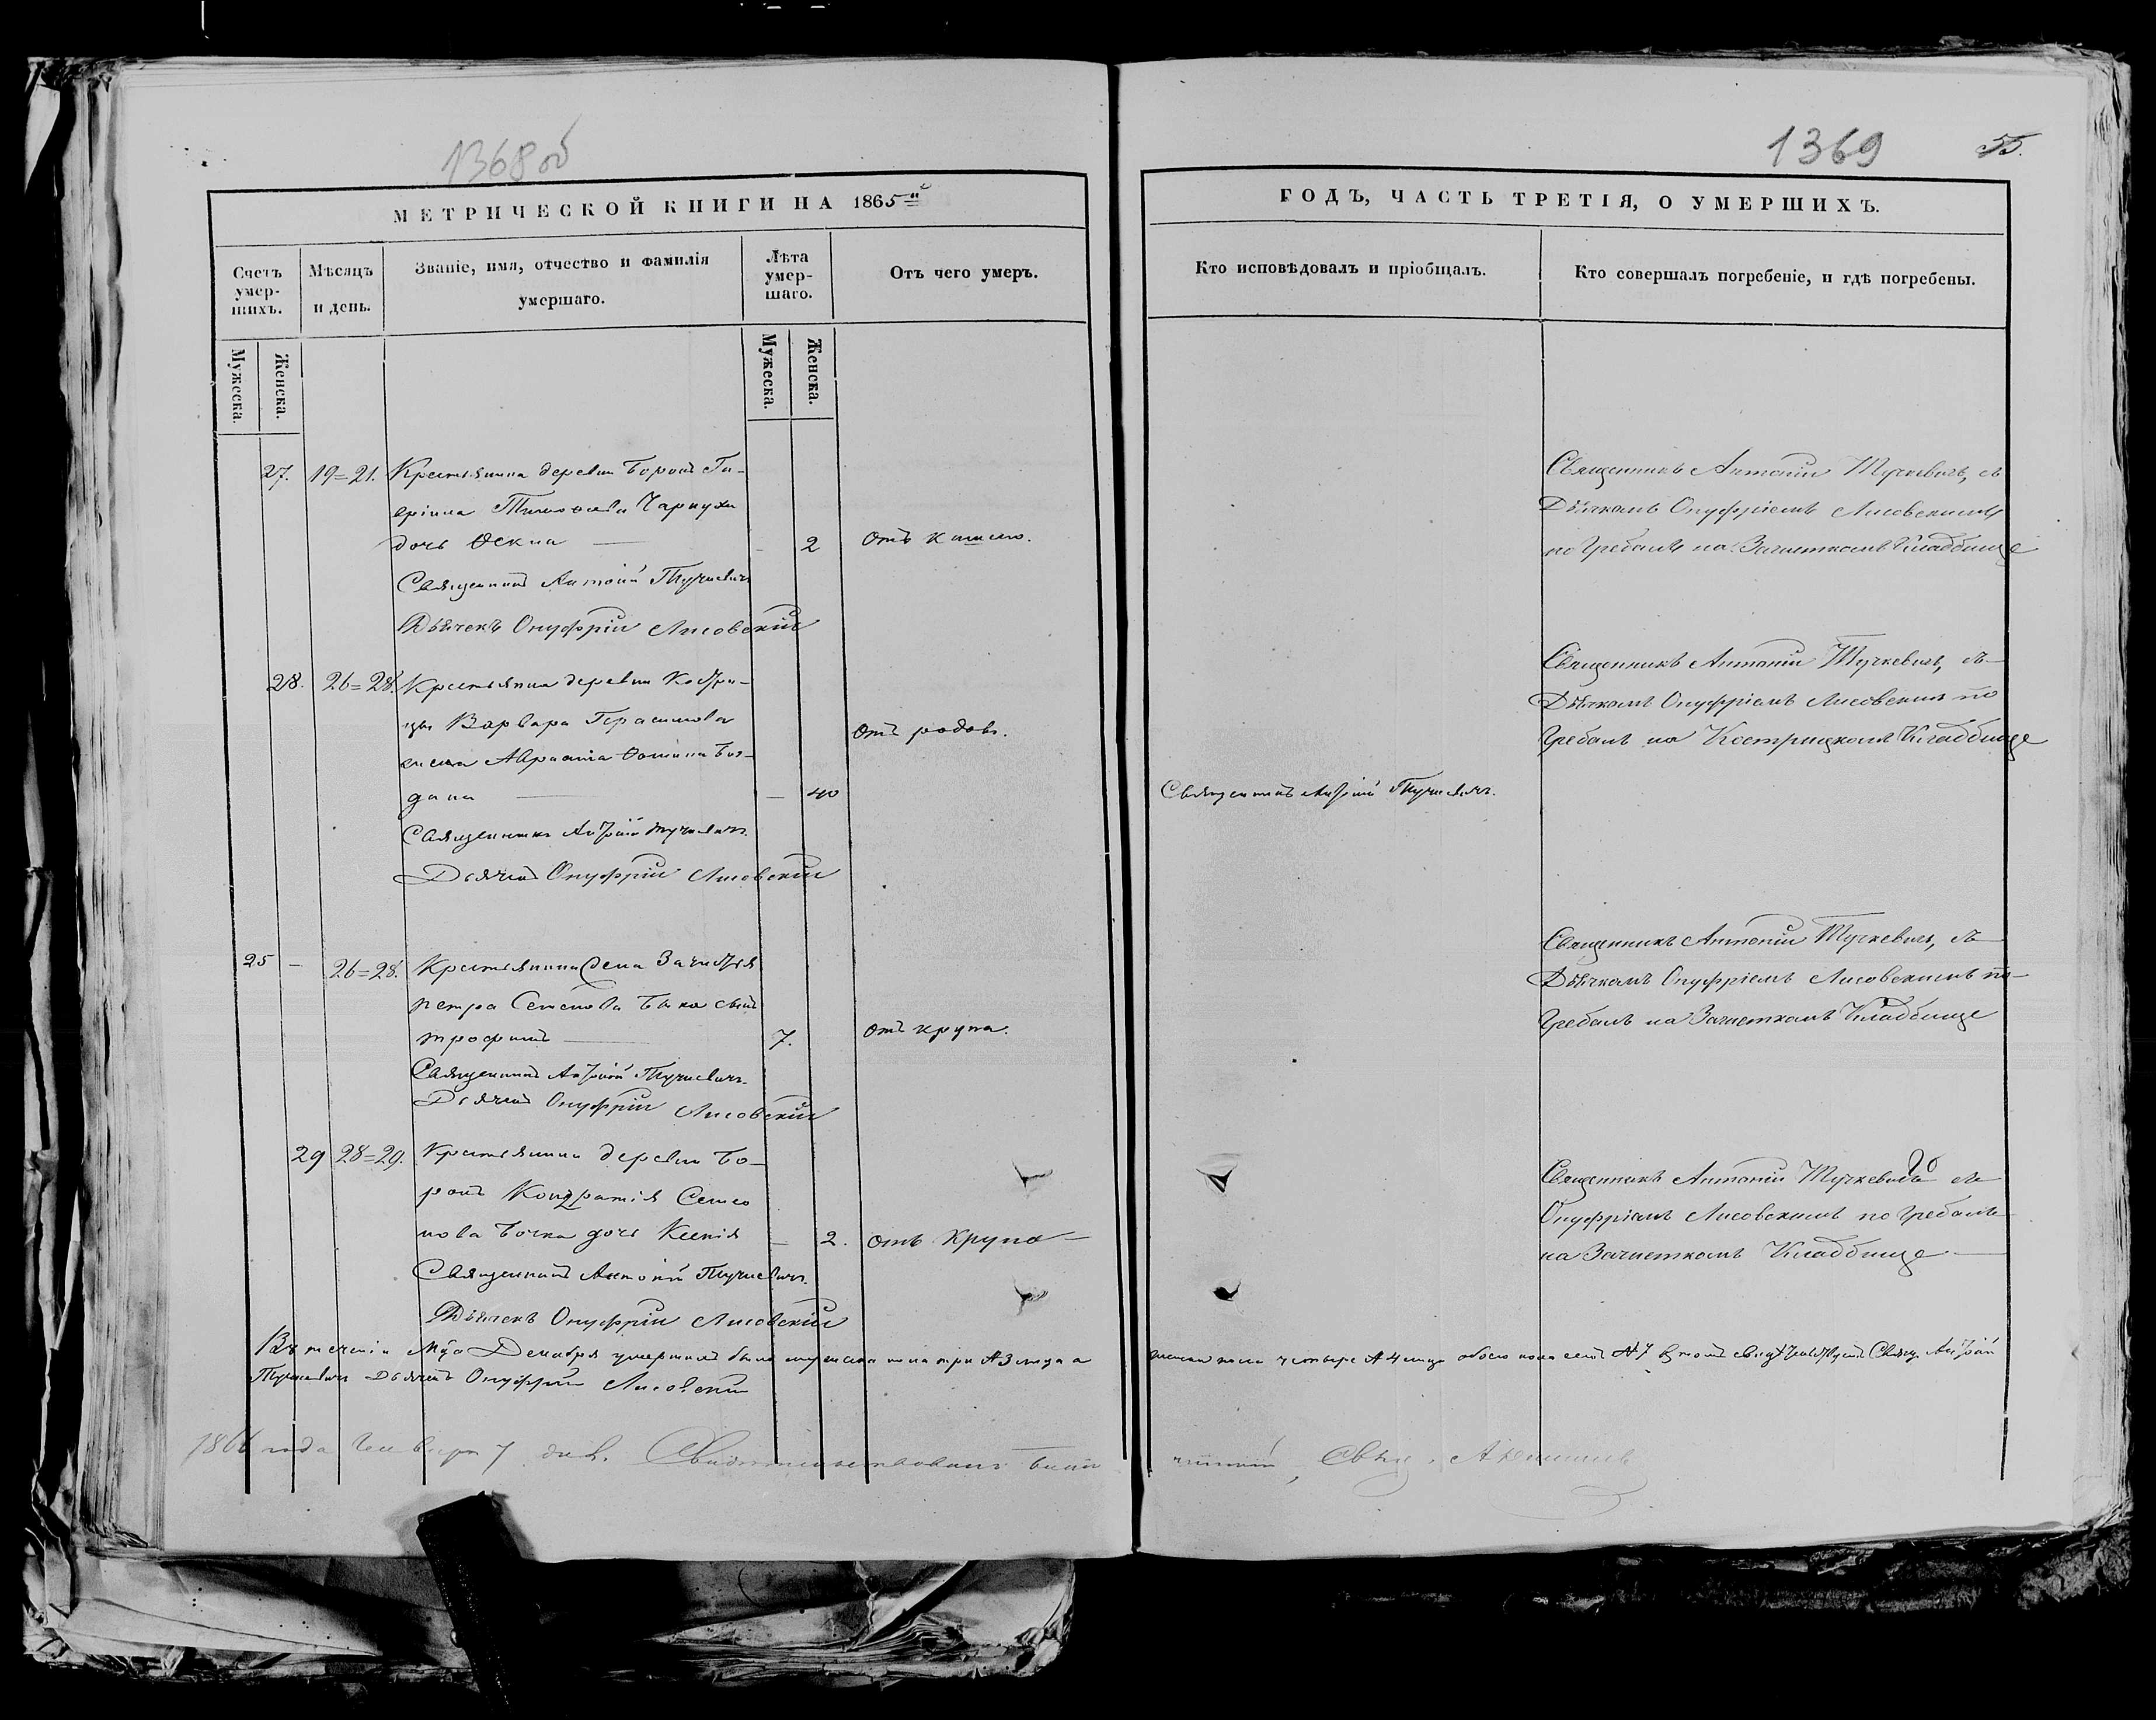 1368 об
МЕТРИЧЕСКОЙ КНИГИ НА 1865й
Счетъ умершихъ.
Мѣсяцъ и день.
Званіе, имя, отчество и фамилія умершаго.
Лѣта умершаго.
Отъ чего умеръ.
Мужеска.
Женска.
Мужеска.
Женска.
27. 19=21. Крестьянина деревни Боронъ
Чаркухи
дочь Ѳекла — 2 Отъ кашлю.
Священникъ Антоній Тучкевичъ
Дьячекъ Онуфрій Лисовскій
28. 26=28. Крестьянина деревни Костри-
цы Варвара Герасимова
Ѳомина Бог-
дана — 40 Отъ родовъ.
Священникъ Антоній Тучкевичъ.
Дьячекъ Онуфрій Лисовскій
25 — 26=28. Крестьянина села Зачистья
Петра Семенова Быка сынъ
Трофимъ — 7. Отъ крупа.
Священникъ Антоній Тучкевичъ.
Дьячекъ Онуфрій Лисовскій
29 28=29. Крестьянина деревни Бо-
ронъ Кондратія Семе
нова Бочка дочь Ксенія — 2. Отъ крупа —
Священникъ Антоній Тучкевичъ.
Дьячекъ Онуфрій Лисовскій
Въ теченіи Мца Декабря умершихъ было мужеска пола три № 3 лица а
Тучкевичъ Дьячекъ Онуфрій Лисовскій
1866 года Генваря 7 дня. Свидѣтельствовалъ
1369 55.
ГОДЪ, ЧАСТЬ ТРЕТІЯ, О УМЕРШИХЪ.
Кто исповѣдовалъ и пріобщалъ.
Кто совершалъ погребеніе, и гдѣ погребены.
Священникъ Антоній Тучкевичъ, съ
Дьячкомъ Онуфріемъ Лисовскимъ
погребалъ на Зачистскомъ Кладбище
Священникъ Антоній Тучкевичъ, съ
Дьячкомъ Онуфріемъ Лисовскимъ по
гребалъ на Кострицкомъ Кладбище
Священникъ Антоній Тучкевичъ.
Священникъ Антоній Тучкевичъ, съ
Дьячкомъ Онуфріемъ Лисовскимъ по-
гребалъ на Зачистскомъ Кладбище
Священникъ Антоній Тучкевичъ съ
Онуфріемъ Лисовскимъ погребалъ
на Зачистскомъ Кладбище
женска пола четыре № 4 лица обоего пола семь № 7 въ томъ Свящ. Антоній